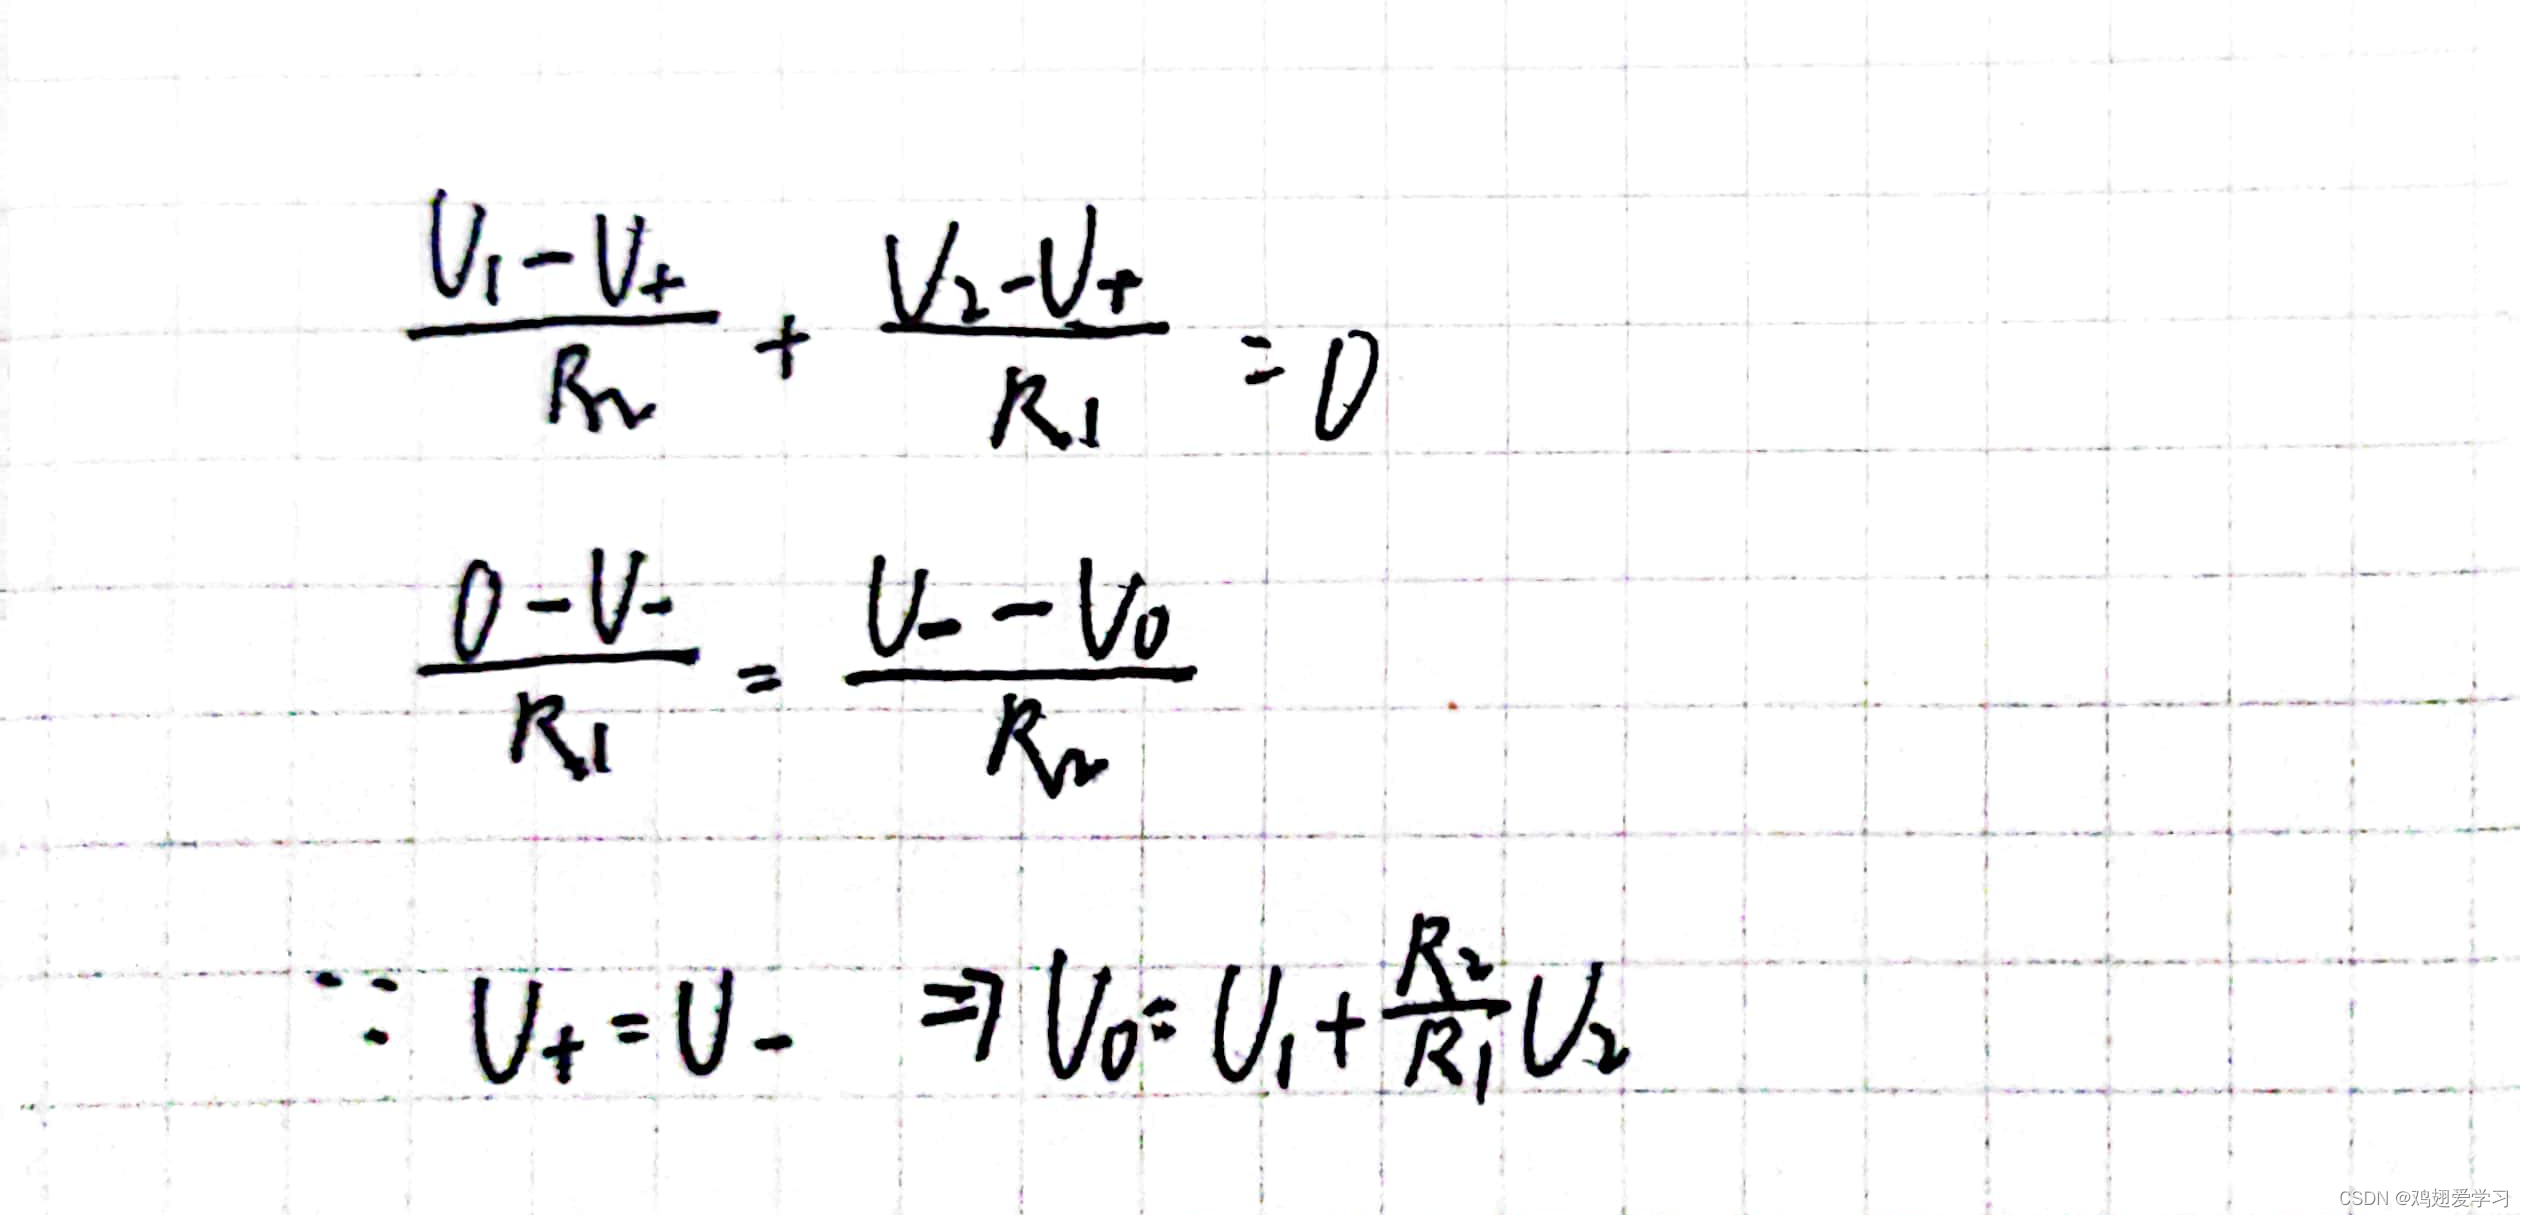 (U₁ - U₊)/R₂ + (U₂ - U₊)/R₁ = 0
(0 - U₋)/R₁ = (U₋ - U₀)/R₂
∵ U₊ = U₋ ⇒ U₀ = U₁ + (R₂/R₁)U₂
CSDN @鸡翅爱学习